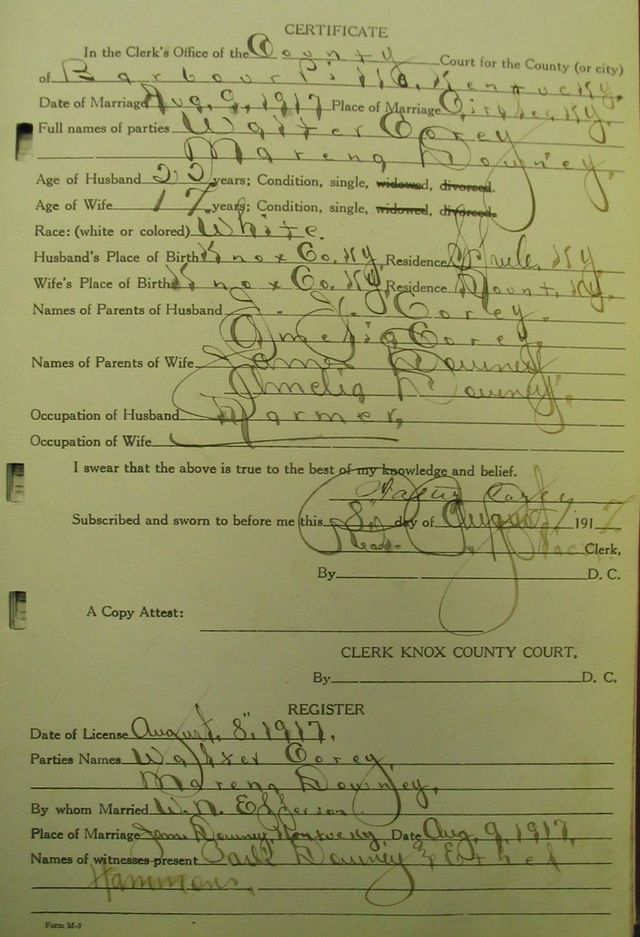 CERTIFICATE
In the Clerk's Office of the County Court for the County (or city)
of Barbourville, Kentucky.
Date of Marriage Aug, 9, 1917 Place of Marriage Ky.
Full names of parties Walter Corey
Marena Downey,
Age of Husband 22 years; Condition, single, widowed, divorced.
Age of Wife 17 years; Condition, single, widowed, divorced.
Race: (white or colored) White.
Husband's Place of Birth Knox Co, Ky, Residence Ky
Wife's Place of Birth Knox Co, Ky, Residence Ky.
Names of Parents of Husband Corey.
Amelia Corey.
Names of Parents of Wife Downey
Amelia Downey,
Occupation of Husband Farmer,
Occupation of Wife
I swear that the above is true to the best of my knowledge and belief.
Subscribed and sworn to before me this 8" day of August 1917
Read Black Clerk,
By D. C.
A Copy Attest:
CLERK KNOX COUNTY COURT.
By D. C.
REGISTER
Date of License August, 8", 1917,
Parties Names Walter Corey,
Marena Downey,
By whom Married W. N. Epperson
Place of Marriage Downey, Date Aug, 9, 1917
Names of witnesses present Downey & Ethel
Hammons.
Form M-3